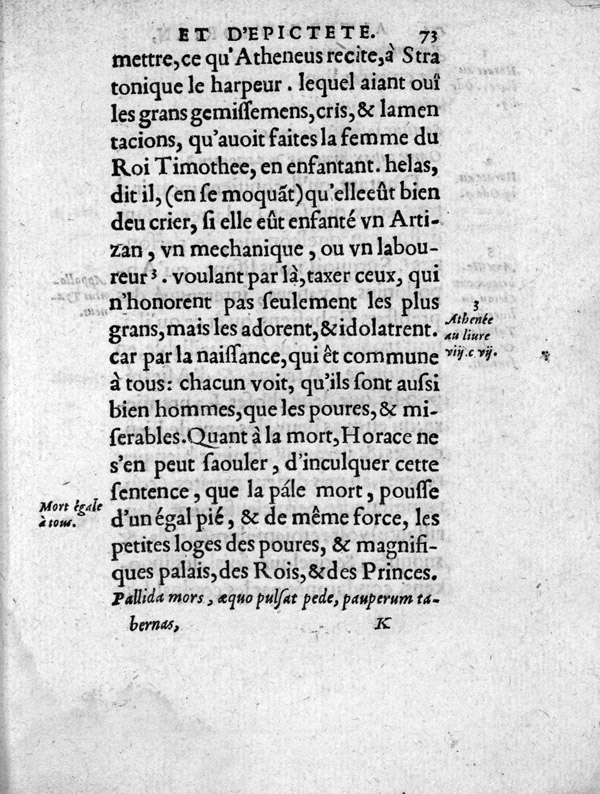 ET D'EPICTETE. 73
mettre, ce qu'Atheneus recite, à Stra
tonique le harpeur. lequel aiant ouï
les grans gemiſſemens, cris, & lamen
tacions, qu'auoit faites la femme du
Roi Timothee, en enfantant. helas,
dit il, (en ſe moquãt) qu'elle eût bien
deu crier, ſi elle eût enfanté vn Arti-
zan, vn mechanique, ou vn labou-
reur ³. voulant par là, taxer ceux, qui
n'honorent pas ſeulement les plus
grans, mais les adorent, & idolatrent.
car par la naiſſance, qui êt commune
à tous: chacun voit, qu'ils ſont auſſi
bien hommes, que les poures, & mi-
ſerables. Quant à la mort, Horace ne
s'en peut ſaouler, d'inculquer cette
ſentence, que la pále mort, pouſſe
d'un égal pié, & de même force, les
petites loges des poures, & magnifi-
ques palais, des Rois, & des Princes.
Pallida mors, æquo pulſat pede, pauperum ta-
bernas, K
3
Athenée
au liure
viij. c vij.
Mort égale
à tous.